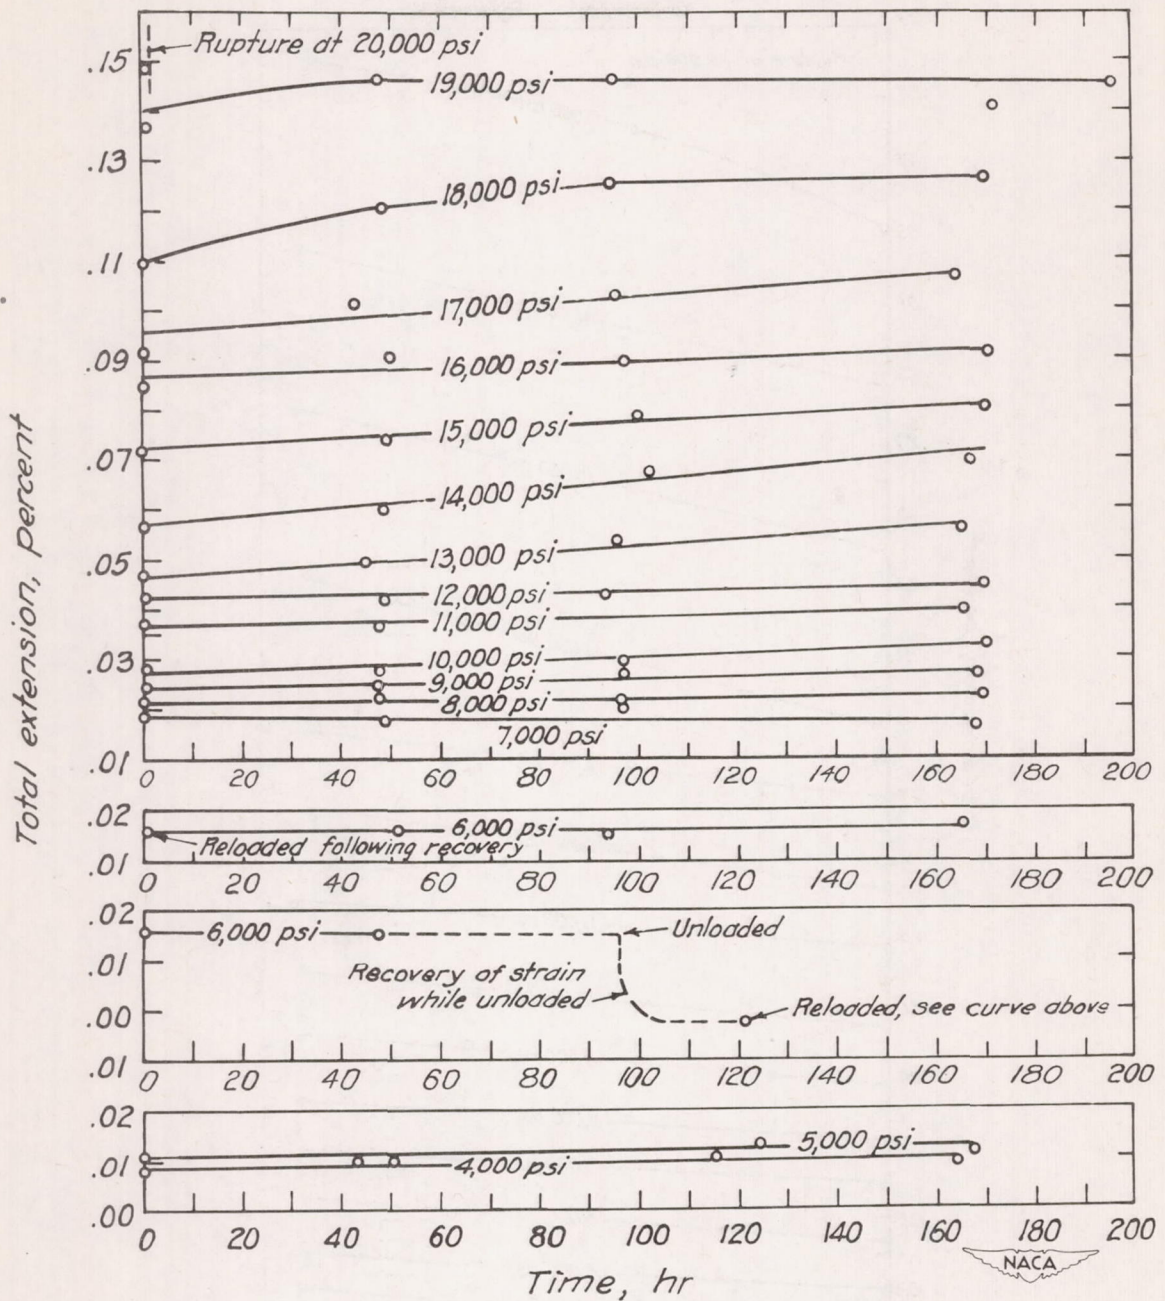 Total extension, percent
.15
.13
.11
.09
.07
.05
.03
.01
Rupture at 20,000 psi
19,000 psi
18,000 psi
17,000 psi
16,000 psi
15,000 psi
14,000 psi
13,000 psi
12,000 psi
11,000 psi
10,000 psi
9,000 psi
8,000 psi
7,000 psi
0 20 40 60 80 100 120 140 160 180 200
.02
.01
6,000 psi
Reloaded following recovery
0 20 40 60 80 100 120 140 160 180 200
.02
.01
.00
.01
6,000 psi
Unloaded
Recovery of strain
while unloaded
Reloaded, see curve above
0 20 40 60 80 100 120 140 160 180 200
.02
.01
.00
5,000 psi
4,000 psi
0 20 40 60 80 100 120 140 160 180 200
Time, hr
NACA